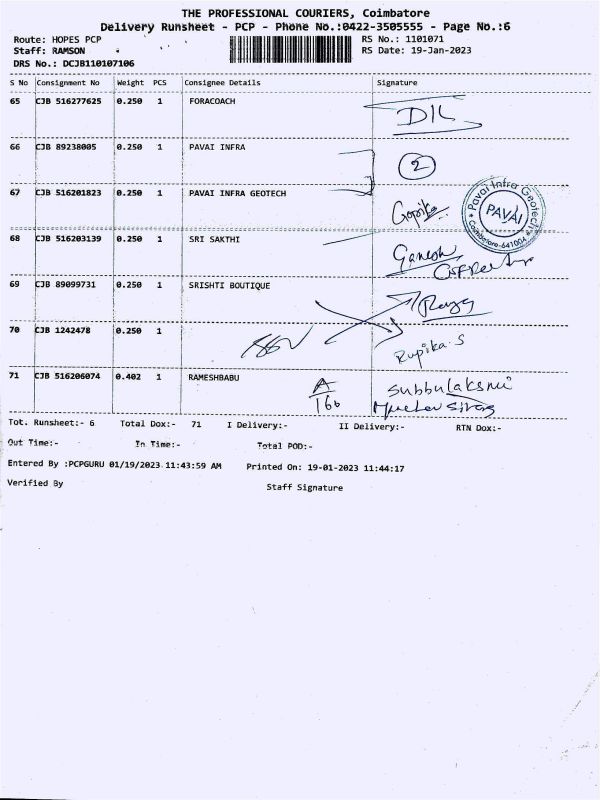 THE PROFESSIONAL COURIERS, Coimbatore
Delivery Runsheet - PCP - Phone No.:0422-3505555 - Page No.:6
Route: HOPES PCP RS No.: 1101071
Staff: RAMSON RS Date: 19-Jan-2023
DRS No.: DCJB110107106
S No Consignment No Weight PCS Consignee Details Signature
65 CJB 516277625 0.250 1 FORACOACH
66 CJB 89238005 0.250 1 PAVAI INFRA
2
67 CJB 516201823 0.250 1 PAVAI INFRA GEOTECH
Gopika
Pavai Infra Geotech
PAVAI
Coimbatore-641004
68 CJB 516203139 0.250 1 SRI SAKTHI
Ganesh
69 CJB 89099731 0.250 1 SRISHTI BOUTIQUE
70 CJB 1242478 0.250 1
Rupika S
71 CJB 516206074 0.402 1 RAMESHBABU
A
166
Subbulakshmi
Tot. Runsheet:- 6 Total Dox:- 71 I Delivery:- II Delivery:- RTN Dox:-
Out Time:- In Time:- Total POD:-
Entered By :PCPGURU 01/19/2023 11:43:59 AM Printed On: 19-01-2023 11:44:17
Verified By Staff Signature